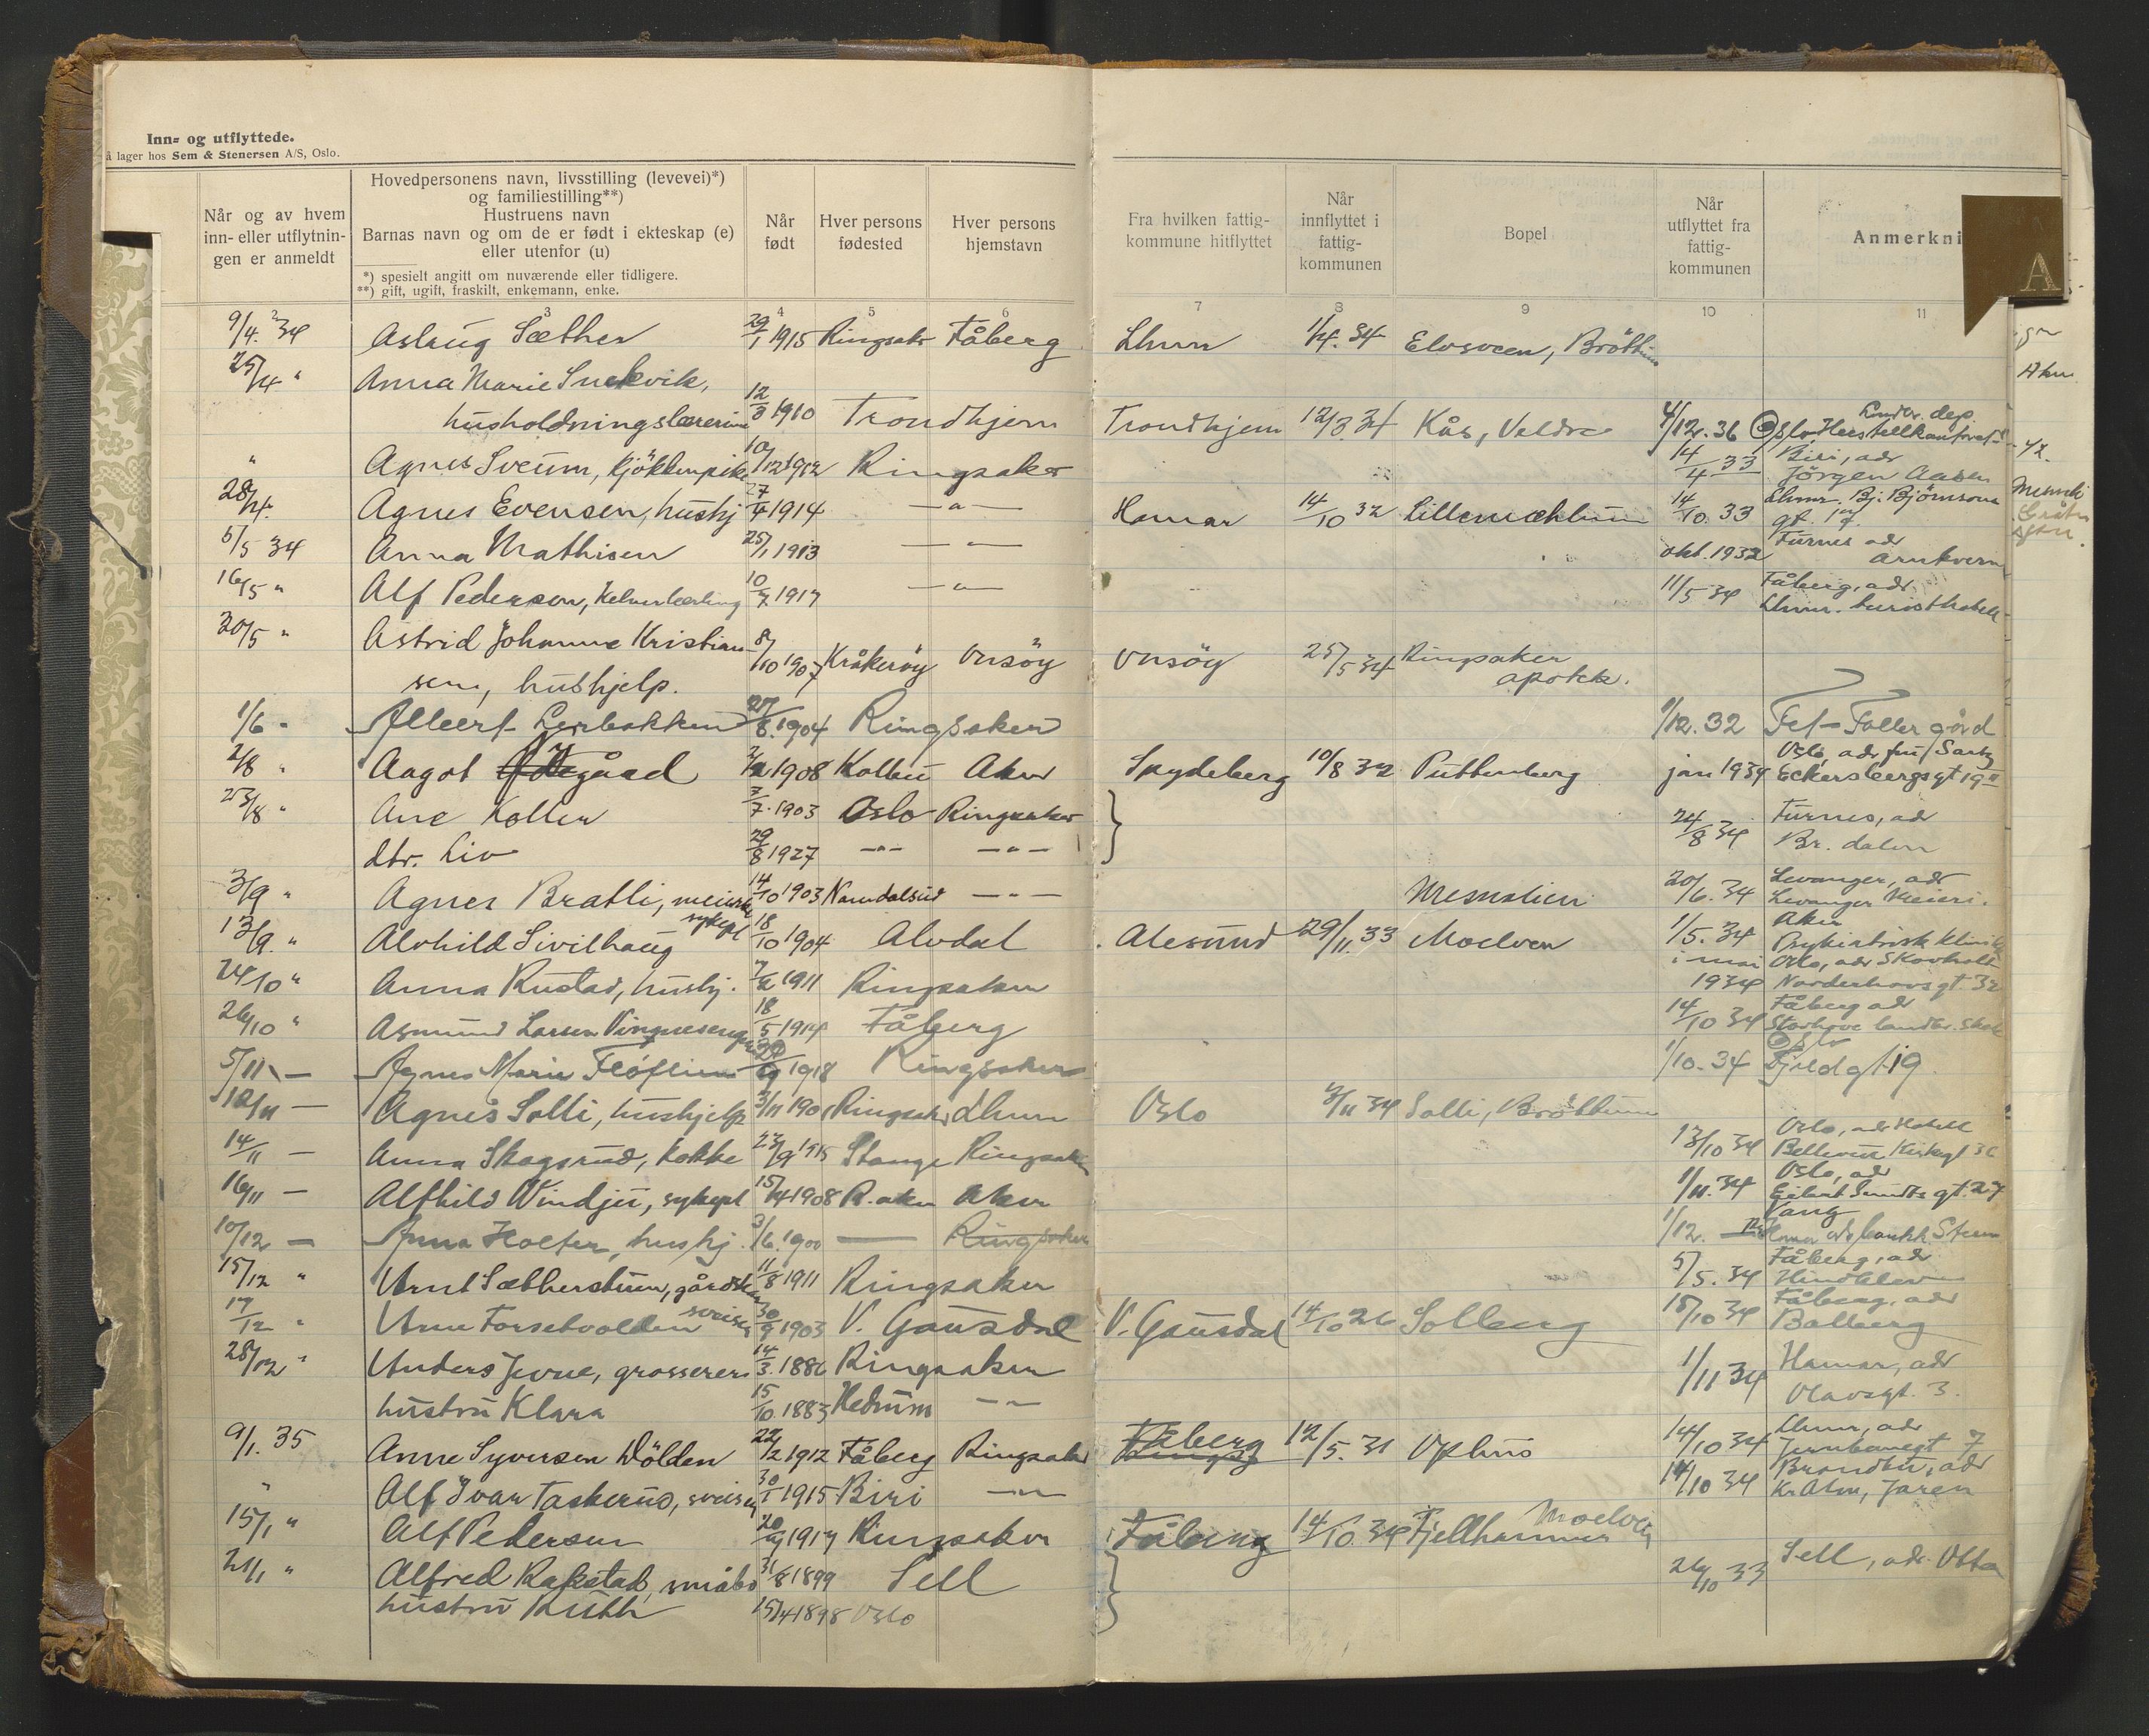 Inn- og utflyttede.
å lager hos Sem & Stenersen A/S, Oslo.
Når og av hvem inn- eller utflytnin- gen er anmeldt
Hovedpersonens navn, livsstilling (levevei)*) og familiestilling**) Hustruens navn Barnas navn og om de er født i ekteskap (e) eller utenfor (u)
*) spesielt angitt om nuværende eller tidligere.
**) gift, ugift, fraskilt, enkemann, enke.
Når født
Hver persons fødested
Hver persons hjemstavn
Fra hvilken fattig- kommune hitflyttet
Når innflyttet i fattig- kommunen
Bopel
Når utflyttet fra fattig- kommunen
Anmerkni
A
2 3 4 5 6 7 8 9 10 11
9/4. 34 Aslaug Sæther 29/1 1915 Ringsaker Fåberg Lhmr 1/4. 34 Elvsveen, Brøttum
25/4 " Anna Marie Snekvik,
husholdningslærerinne 12/3 1910 Trondhjem Trondhjem 12/3. 34 Kås, Veldre 4/12. 36 Oslo, Landbr. dep.
" Agnes Sveum, kjøkkenpike 10/12 1912 Ringsaker 14/4 33 Biri, adr Jörgen Aasen
28/4. Agnes Evensen, hushj 27/4 1914 — " — Hamar 14/10 32 Lillemæhlum 14/10. 33 Lhmr. Bj. Björnsons gt. 17.
5/5 34 Anna Mathisen 25/1 1913 — " — okt. 1932 Furnes adr Arnkvern
16/5 " Alf Pedersen, Kelnerlærling 10/7 1917 — " — 11/5 34 Fåberg, adr. Lhmr. turisthotell
30/5 " Astrid Johanne Kristian-
sen, hushjelp. 8/10 1907 Kråkeröy Onsöy Onsöy 25/5 34 Ringsaker apotek.
1/6 - Albert Lerbakken 27/8. 1904 Ringsaker 1/12. 32 Fet - Faller gård
2/8 " Aagot Ødegaard 1908 Kolbu Aker Spydeberg 10/8 32 Puttenberg jan 1934 Oslo, adr fru Eckersbergsgt 19 II
23/8 " Ane Koller 3/7. 1903 Oslo Ringsaker 24/8 34 Furnes, adr
dtr. Liv 29/8 1927 — " — — " — Br. dalen
3/9 " Agnes Bratli, meierske 14/10 1903 Namdalseid — " — Mesnalien 20/6. 34 Levanger, adr Levanger Meieri.
13/9. " Alvhild Sivilhaug sykepl 18/10 1904 Alvdal Alesund 29/11. 33 Moelven 1/5. 34 Aker Psykiatrisk klinikk
24/10 " Anna Rustad, hushj. 7/2 1911 Ringsaker i mai 1934 Oslo, adr Skovholt Norderhovsgt. 32
26/10 " Asmund Larsen 18/5 1914 Fåberg 14/10 34 Fåberg adr Storhove landbr. skole
5/11 — Agnes Marie 1918 Ringsaker 1/10. 34 Oslo Fjeldgt 19
12/11 — Agnes Solli, hushjelp 3/11 1901 Ringsaker Lhmr Oslo 3/11 34 Solli, Brøttum
14/11 — Anna Skagsrud, kokke 23/9 1915 Stange Ringsaker 13/10 34 Oslo, adr Hotell Bellevue, Kirkegt 36
16/11 — Alfhild Windju, sykepl 15/4 1908 R.aker Aker 1/11. 34 Oslo, adr Eilert Sundts gt. 27
10/12 — Anna Holter, hushj. 3/6. 1900 — Ringsaker 1/12. — Vang
15/12 " Arnt Sætherstuen, gårdsk 11/8 1911 Ringsaker 5/5. 34 Fåberg, adr
17/12 " Arne Forsetvolden sveiser 30/9 1903 V. Gausdal V. Gausdal 14/10 26 Solberg 15/10 34 Fåberg, adr Balberg
28/12 " Anders Jevne, grosserer 14/3. 1886 Ringsaker 1/11 34 Hamar, adr
hustru Klara 15/10. 1883 Hedrum — " — Olavsgt. 3.
9/1. 35 Anne Syversen Dölden 22/2 1912 Fåberg Ringsaker Fåberg 12/5. 31 Ophus 14/10 34 Lhmr, adr Jernbanegt 7
" Alf Ivar Taskerud, sveiser 30/1 1915 Biri — " — 14/10 34 Brandbu, adr Kr Alm, Jaren
15/1 " Alf Pedersen 1917 Ringsaker Fåberg 14/10. 34 Fjellhammer Moelven
21/1 " Alfred Rakstad, småbr 31/8 1899 Sell 26/10 33 Sell, adr. Otta
hustru Ruth 15/4 1898 Oslo